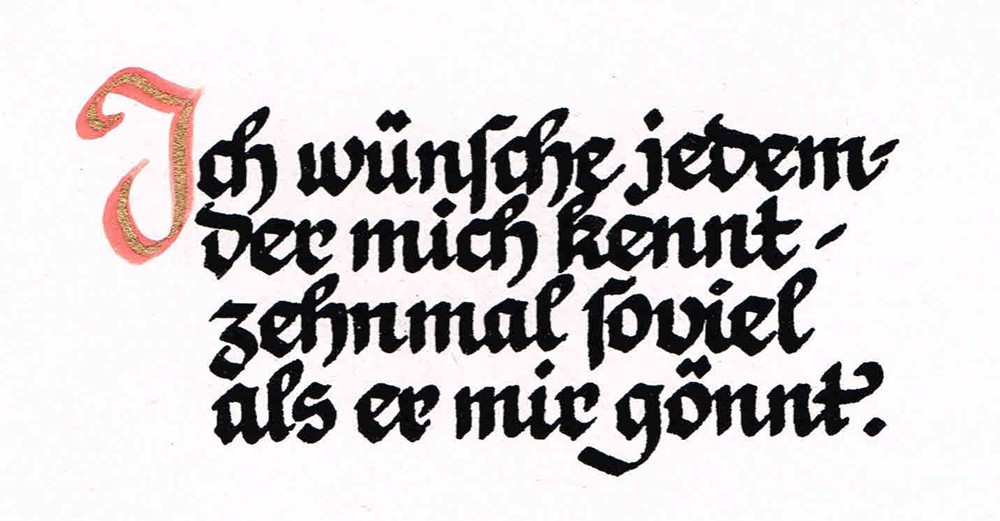 Ich wünſche jedem-
der mich kennt -
zehnmal ſoviel
als er mir gönnt.